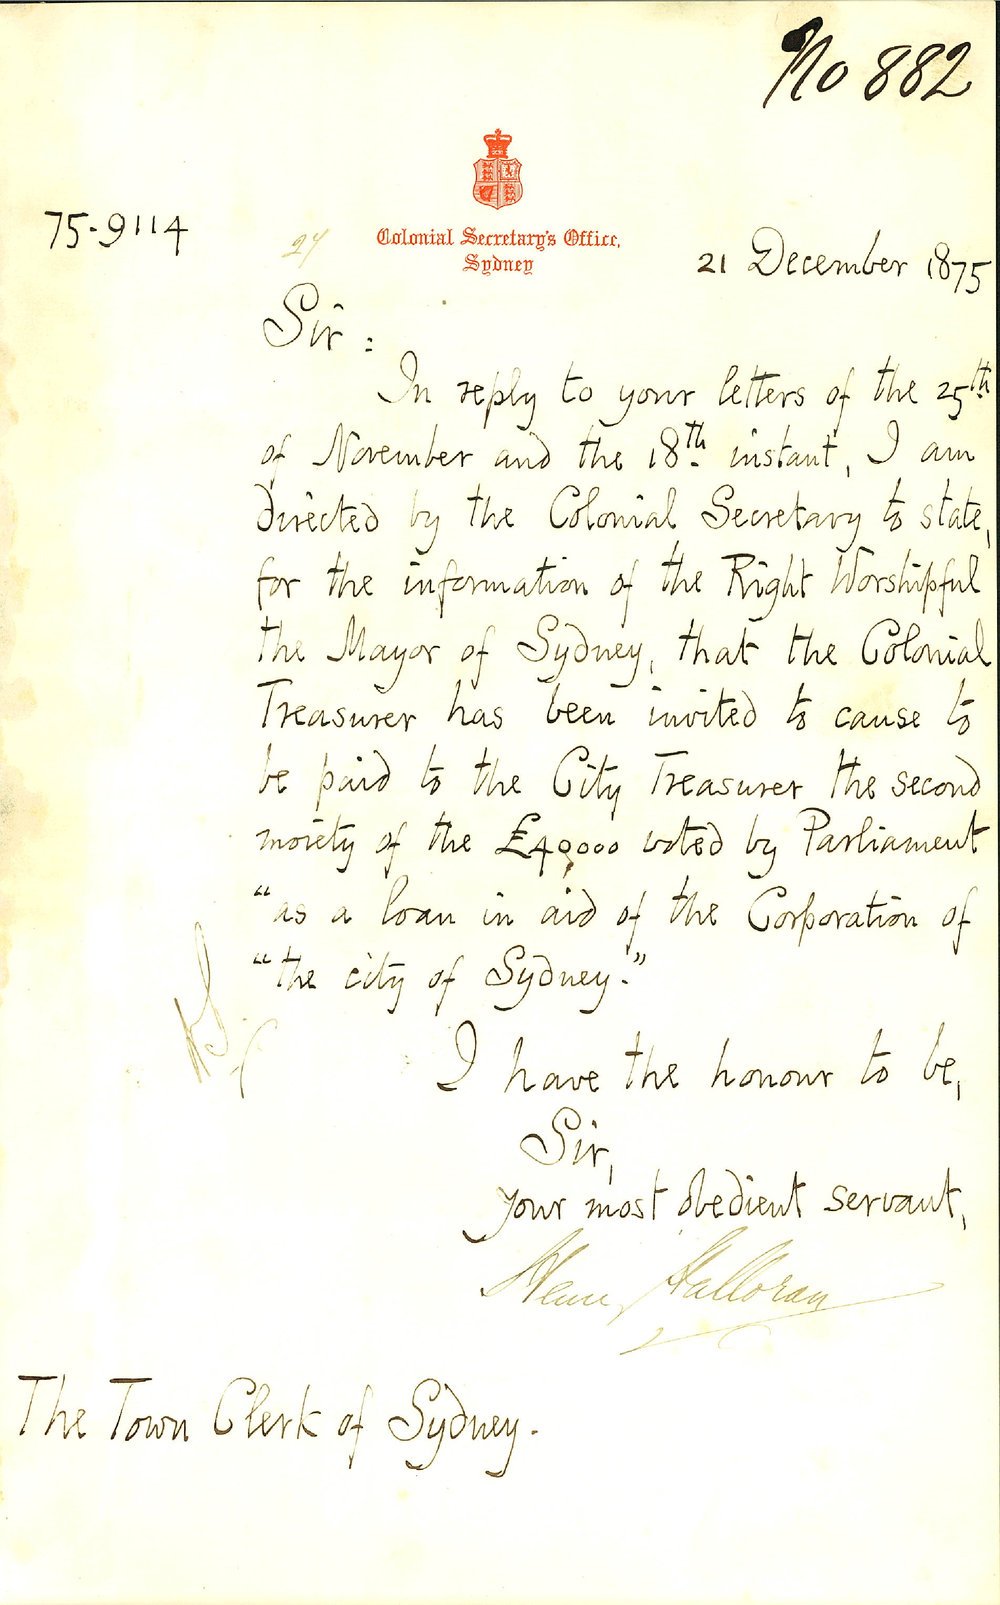 No 882
75-9114
27
Colonial Secretary's Office,
Sydney
21 December 1875
Sir :
In reply to your letters of the 25th
of November and the 18th instant, I am
directed by the Colonial Secretary to state,
for the information of the Right Worshipful
the Mayor of Sydney, that the Colonial
Treasurer has been invited to cause to
be paid to the City Treasurer the second
moiety of the £40,000 voted by Parliament
"as a loan in aid of the Corporation of
"the city of Sydney."
I have the honour to be,
Sir,
your most obedient servant,
Henry Halloran
The Town Clerk of Sydney.